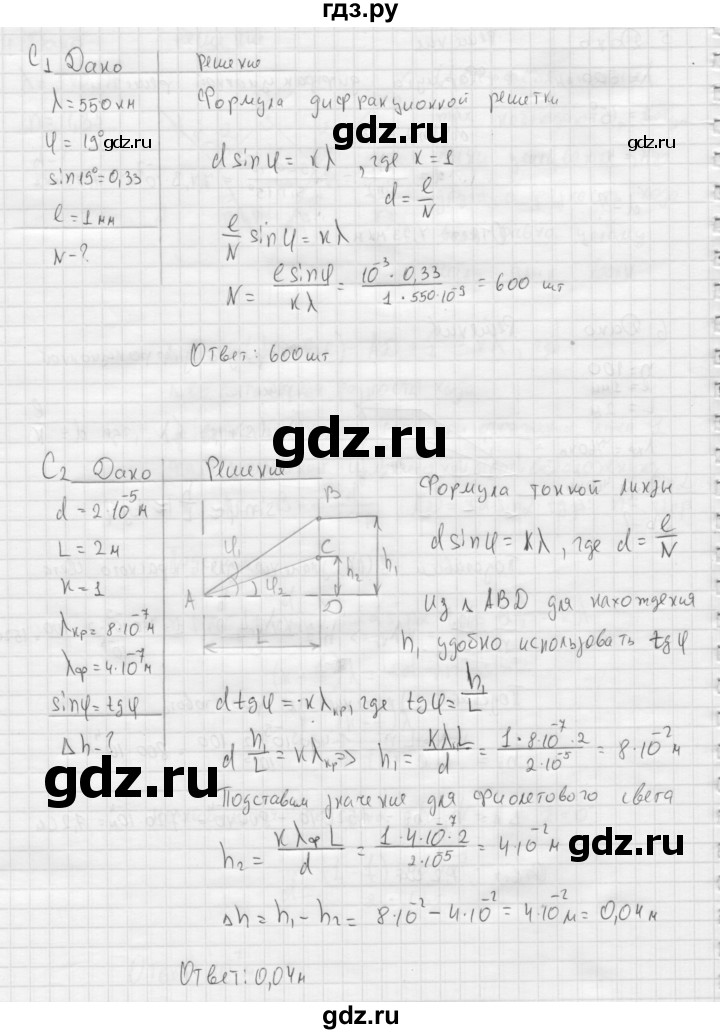 гдз.ру
С1 Дано Решение
λ = 550 нм Формула дифракционной решетки
φ = 19°
gdz.ru
gdz.ru
gdz.ru
d sinφ = κλ , где κ = 1
sin19° = 0,33
d = l/N
l = 1 мм
l/N sinφ = κλ
N - ?
N = l sinφ / κλ = 10⁻³ · 0,33 / 1 · 550·10⁻⁹ = 600 шт
Ответ: 600 шт
gdz.ru
С2 Дано Решение
d = 2·10⁻⁵ м
L = 2 м
κ = 1
λкр = 8·10⁻⁷ м
λф = 4·10⁻⁷ м
sinφ = tgφ
Δh - ?
B
φ1
C
h2
h1
A
φ2
D
L
Формула тонкой линзы
d sinφ = κλ , где d = l/N
gdz.ru
Из Δ ABD для нахождения
h1 удобно использовать tgφ
d tgφ = κλкр, где tgφ = h1/L
d h1/L = κλкр => h1 = κλL/d = 1·8·10⁻⁷·2 / 2·10⁻⁵ = 8·10⁻² м
gdz.ru
Подставим значение для фиолетового света
h2 = κλфL / d = 1·4·10⁻⁷·2 / 2·10⁻⁵ = 4·10⁻² м
gdz.ru
Δh = h1 - h2 = 8·10⁻² - 4·10⁻² = 4·10⁻² м = 0,04 м
Ответ: 0,04 м
gdz.ru
gdz.ru